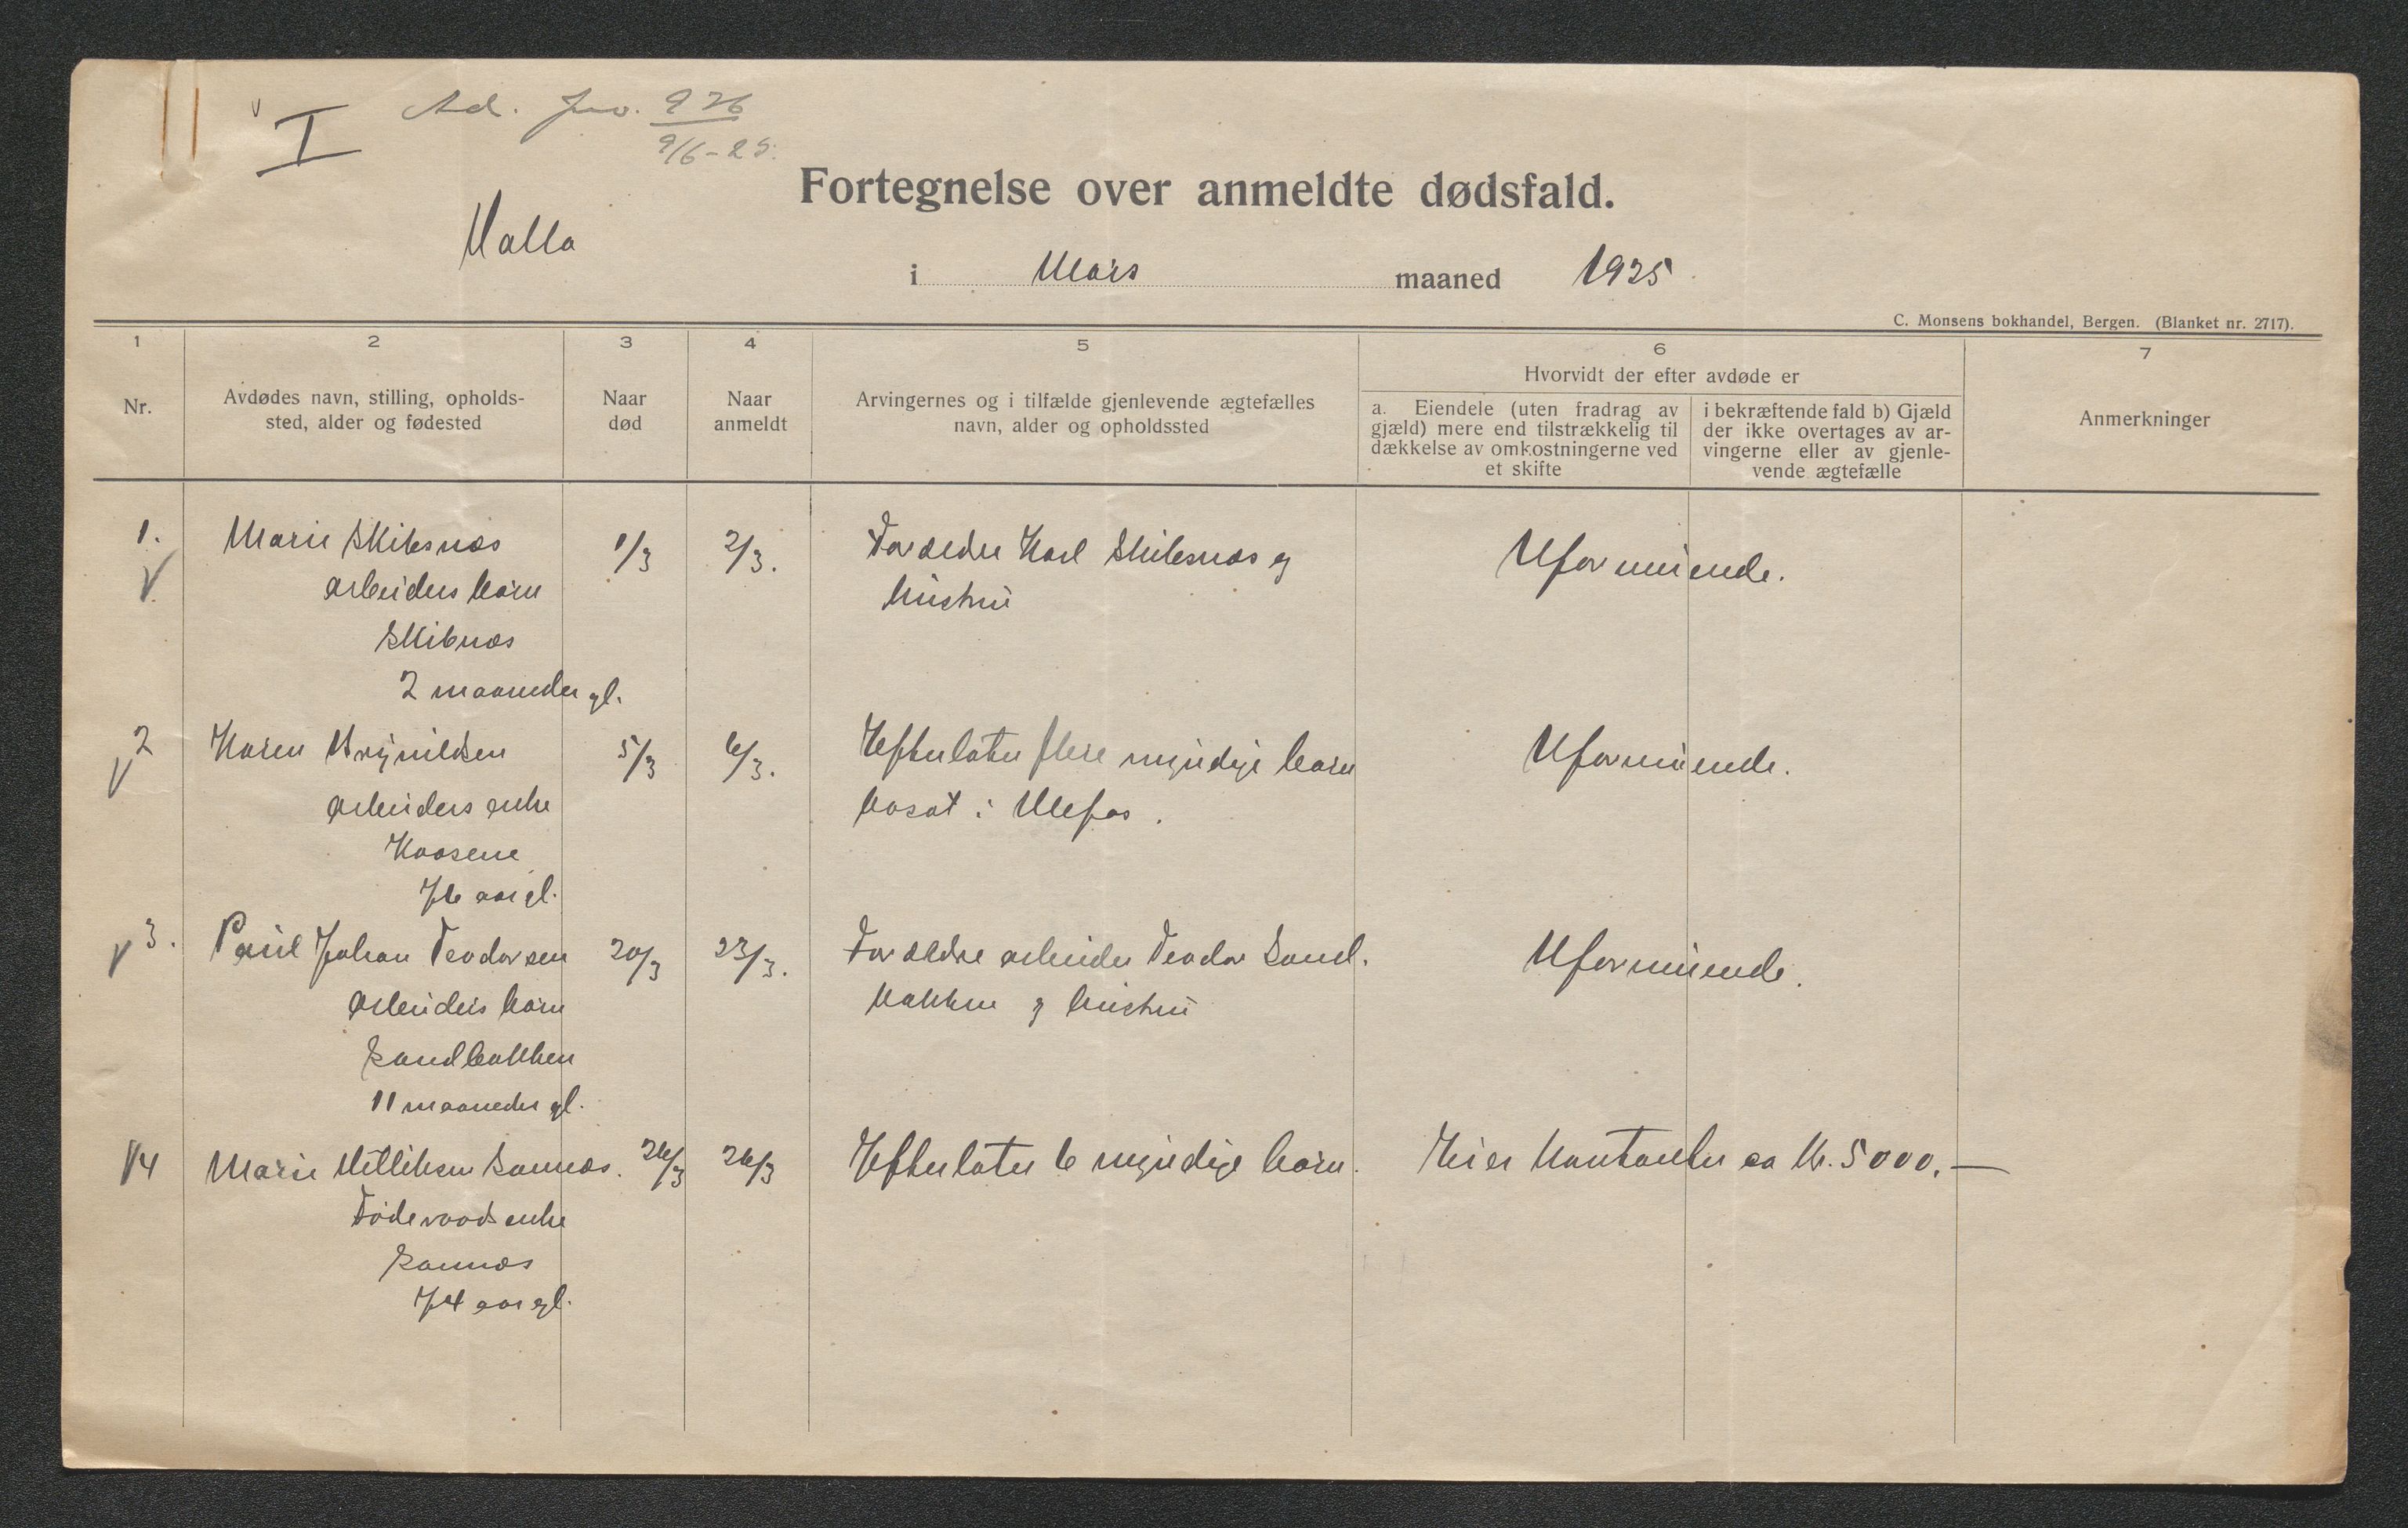 I
Ad. Jno. 926
9/6-25.
Fortegnelse over anmeldte dødsfald.
Holla
i Mars maaned 1925
C. Monsens bokhandel, Bergen. (Blanket nr. 2717).
1
2
3
4
5
6
7
Nr.
Avdødes navn, stilling, opholds-
sted, alder og fødested
Naar
død
Naar
anmeldt
Arvingernes og i tilfælde gjenlevende ægtefælles
navn, alder og opholdssted
Hvorvidt der efter avdøde er
a. Eiendele (uten fradrag av
gjæld) mere end tilstrækkelig til
dækkelse av omkostningerne ved
et skifte
i bekræftende fald b) Gjæld
der ikke overtages av ar-
vingerne eller av gjenle-
vende ægtefælle
Anmerkninger
1. Marie Skibsnæs 1/3 2/3. Forældre Karl Skibsnæs og Uformuende.
arbeiders barn hustru
Skibnæs
2 maaneder gl.
2 Karen Brynildsen 5/3 6/3. Efterlater flere myndige barn Uformuende.
arbeiders enke bosat i Ulefos.
Kaasene
76 aar gl.
3. Paul Johan Teodorsen 20/3 23/3. Forældre arbeider Teodor Sand- Uformuende.
arbeiders barn bakken og hustru
Sandbakken
11 maaneder gl.
4 Marie Sannæs. 26/3 26/3 Efterlater 6 myndige barn. Eier kontanter ca kr. 5000.—
enke
Sannæs
74 aar gl.